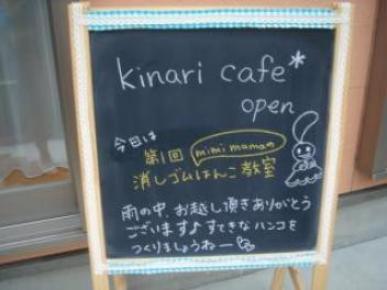 kinari cafe*
open
今日は
第1回 mimi mamaの
消しゴムはんこ教室
雨の中、お越し頂きありがとう
ございます♪ すてきなハンコを
つくりましょうねー